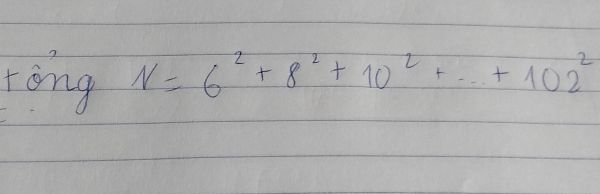 tổng N = 6² + 8² + 10² + ... + 102²